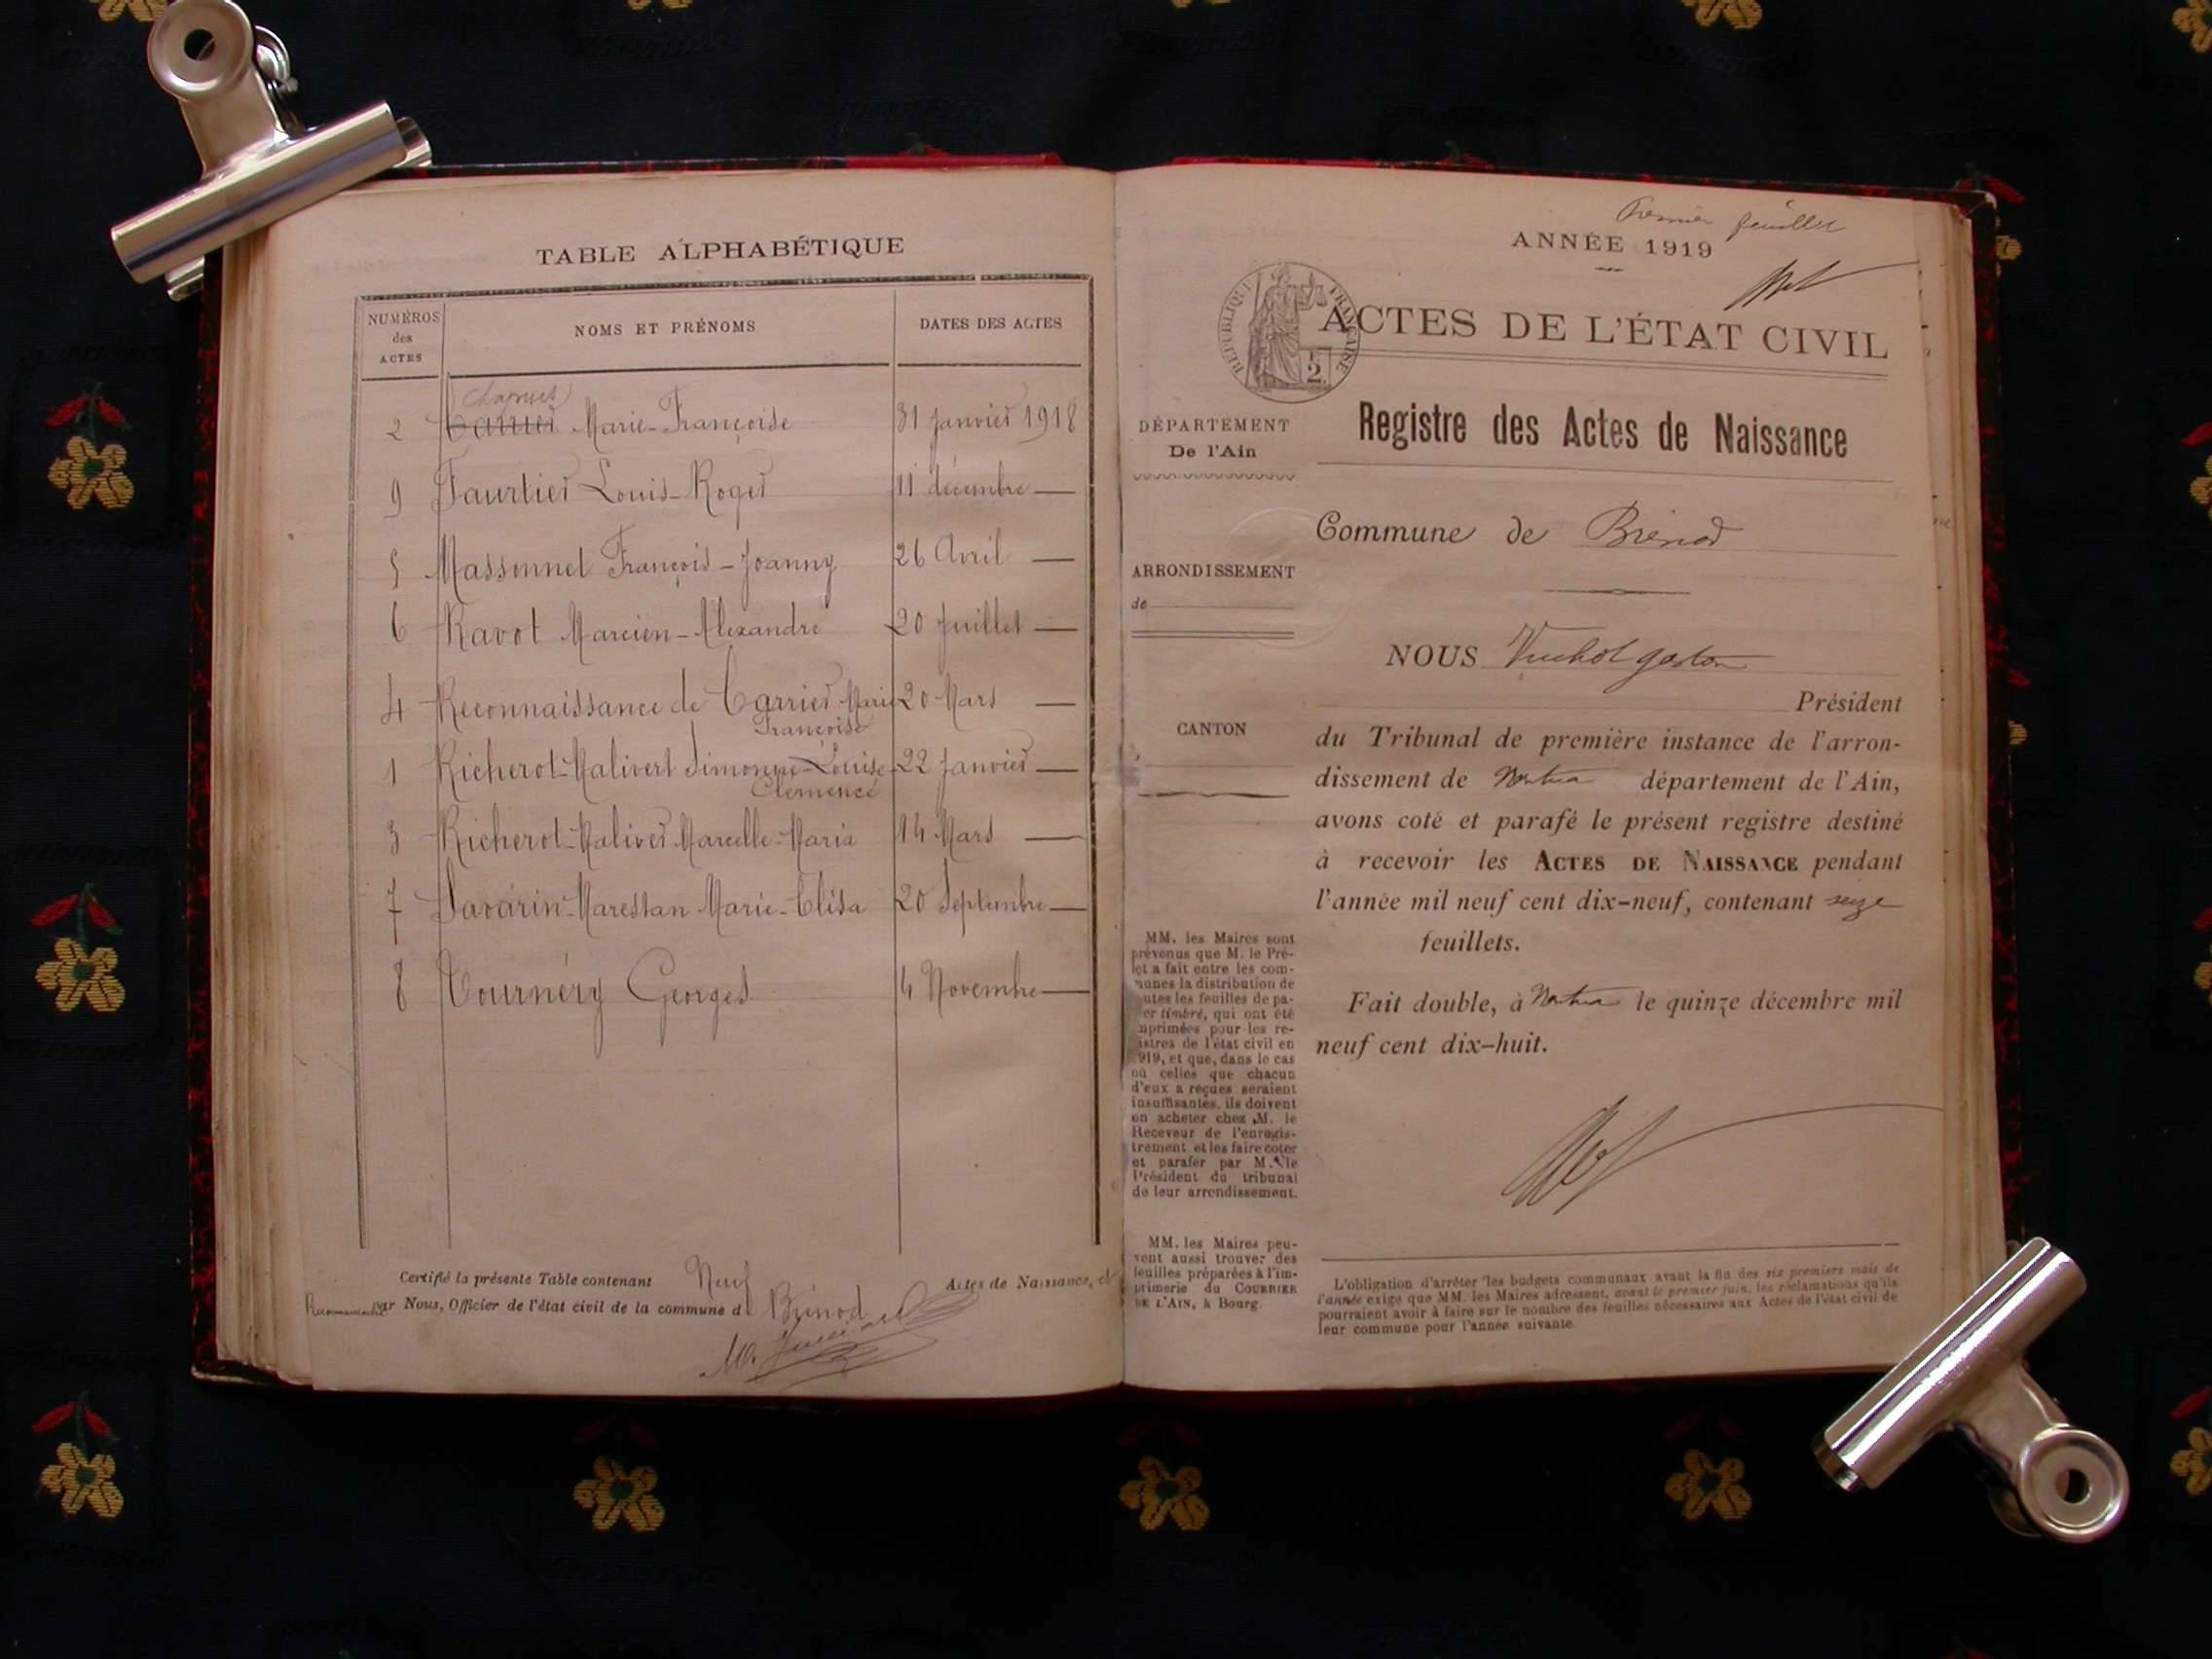 TABLE ALPHABÉTIQUE
NUMÉROS
des
ACTES
NOMS ET PRÉNOMS
DATES DES ACTES
Chapuis
2 Carrier Marie-Françoise 31 Janvier 1918
9 Taurtier Louis-Roger 11 décembre —
5 Massonnet François-Joanny 26 Avril —
6 Ravot Marcien-Alexandre 20 Juillet —
4 Reconnaissance de Carrier Marie 20 Mars —
Françoise
1 Richerot-Malivert Simonne-Louise 22 Janvier —
Clémence
3 Richerot-Maliver Marcelle-Maria 14 Mars —
7 Savarin-Marestan Marie-Elisa 20 Septembre —
8 Tournéry Georges 4 Novembre —
Certifié la présente Table contenant Neuf Actes de Naissance, et
par Nous, Officier de l'état civil de la commune d Brénod
Premier feuillet
ANNÉE 1919
RÉPUBLIQUE FRANÇAISE
2
ACTES DE L'ÉTAT CIVIL
DÉPARTEMENT
De l'Ain
Registre des Actes de Naissance
Commune de Brénod
ARRONDISSEMENT
de
NOUS Vuchot gaston
Président
CANTON
du Tribunal de première instance de l'arron-
dissement de Nantua département de l'Ain,
avons coté et parafé le présent registre destiné
à recevoir les ACTES DE NAISSANCE pendant
l'année mil neuf cent dix-neuf, contenant seize
feuillets.
Fait double, à Nantua le quinze décembre mil
neuf cent dix-huit.
MM. les Maires sont
prévenus que M. le Pré-
fet a fait entre les com-
munes la distribution de
utes les feuilles de pa-
er timbré, qui ont été
mprimées pour les re-
istres de l'état civil en
919, et que, dans le cas
où celles que chacun
d'eux a reçues seraient
insuffisantes, ils doivent
en acheter chez M. le
Receveur de l'enregis-
trement et les faire coter
et parafer par M. le
Président du tribunal
de leur arrondissement.
MM. les Maires peu-
vent aussi trouver des
feuilles préparées à l'im-
primerie du COURRIER
DE L'AIN, à Bourg.
L'obligation d'arrêter les budgets communaux avant la fin des six premiers mois de
l'année exige que MM. les Maires adressent, avant le premier juin, les réclamations qu'ils
pourraient avoir à faire sur le nombre des feuilles nécessaires aux Actes de l'état civil de
leur commune pour l'année suivante.